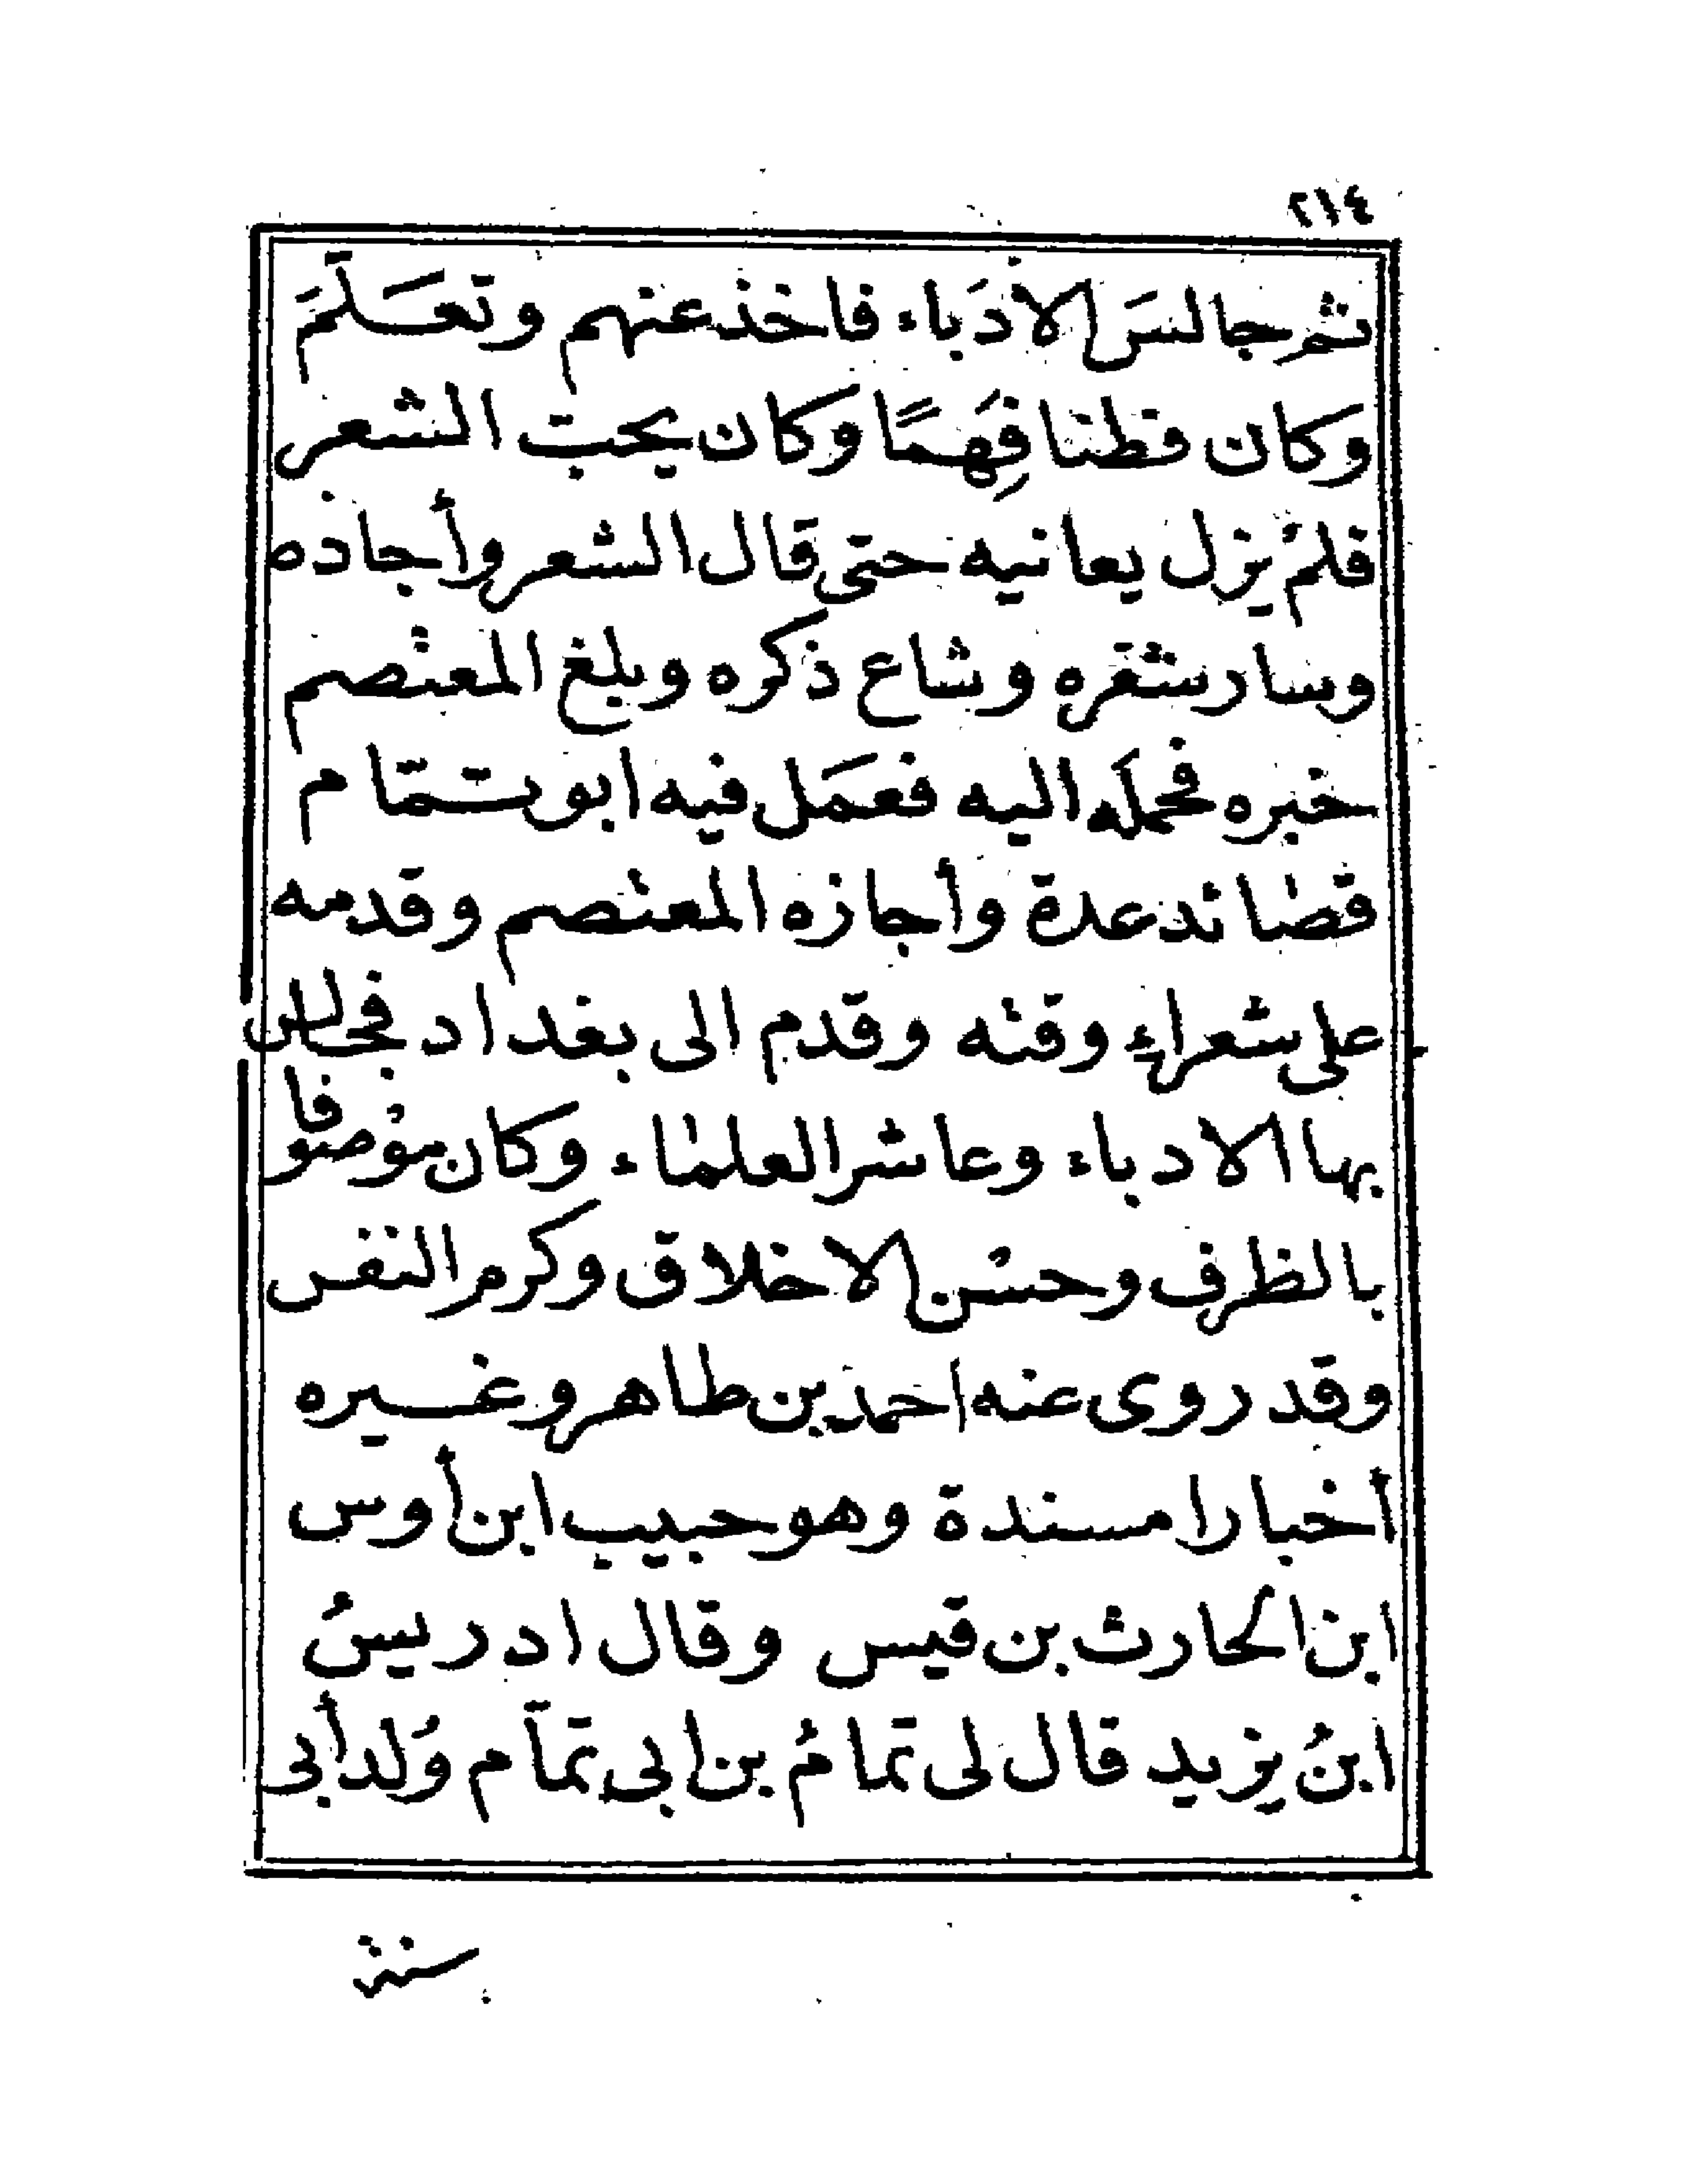 ٢١٤
ثم جالسَ الأدَباء فاخذ عنهم وتعَلَّمَ
وكان فطنا فَهِمًا وكان يحب الشعر
فلم يزل يعانيه حتى قال الشعر وأجاده
وسار شعره وشاع ذكره وبلغ المعتصم
خبره فحمله اليه فعمَل فيه ابو تمّام
قصائد عدة وأجازه المعتصم وقدمه
على شعراءِ وقته وقدم الى بغداد فجالس
بها الادباء وعاشر العلماء وكان موصوفا
بالظرف وحسْن الاخلاق وكرم النفس
وقد روى عنه احمد بن طاهر وغيره
أخبارا مسندة وهو حبيب ابن أوس
ابن الحارث بن قيس وقال ادريسُ
ابنُ يزيد قال لى تمامُ بن ابى تمام وُلد أبى
سنة